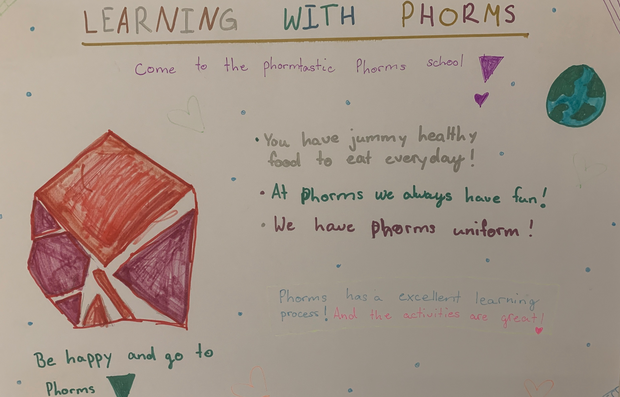 LEARNING WITH PHORMS
Come to the phormtastic Phorms school
• You have jummy healthy
food to eat everyday!
• At phorms we always have fun!
• We have phorms uniform!
Phorms has a excellent learning
process! And the activities are great!
Be happy and go to
Phorms